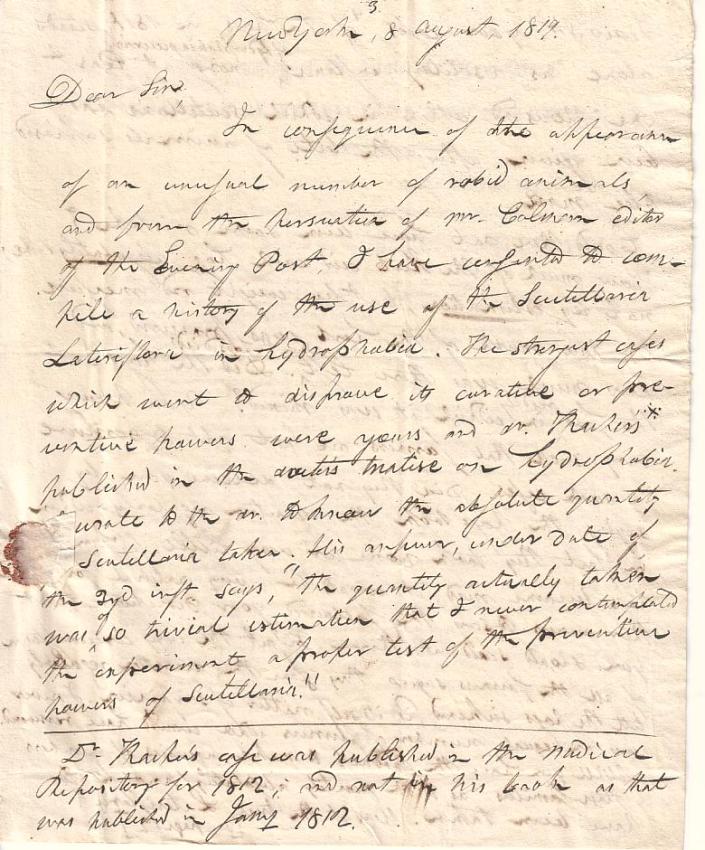 New York, 8 august 1819.
Dear Sir,
In consequence of the appearance
of an unusual number of rabid animals
and from the persuation of mr. Colman editor
of the Evening Post, I have consented to com-
pile a history of the use of the Scutellaria
Lateriflora in hydrophobia. The strongest cases
which went to disprove its curative or pre-
ventive powers were yours and dr. Thacher's
published in the treatise on hydrophobia.
wrote to the dr. to know the absolute quantity
Scutellaria taken. His answer, under date of
the 3rd inst says, "the quantity actually taken
was of so trivial estimation that I never contemplated
the experiment a proper test of the preventive
powers of Scutellaria."
Dr. Thacher's case was published in the medical
Repository for 1812, and not in his book as that
was published in Jany 1812.